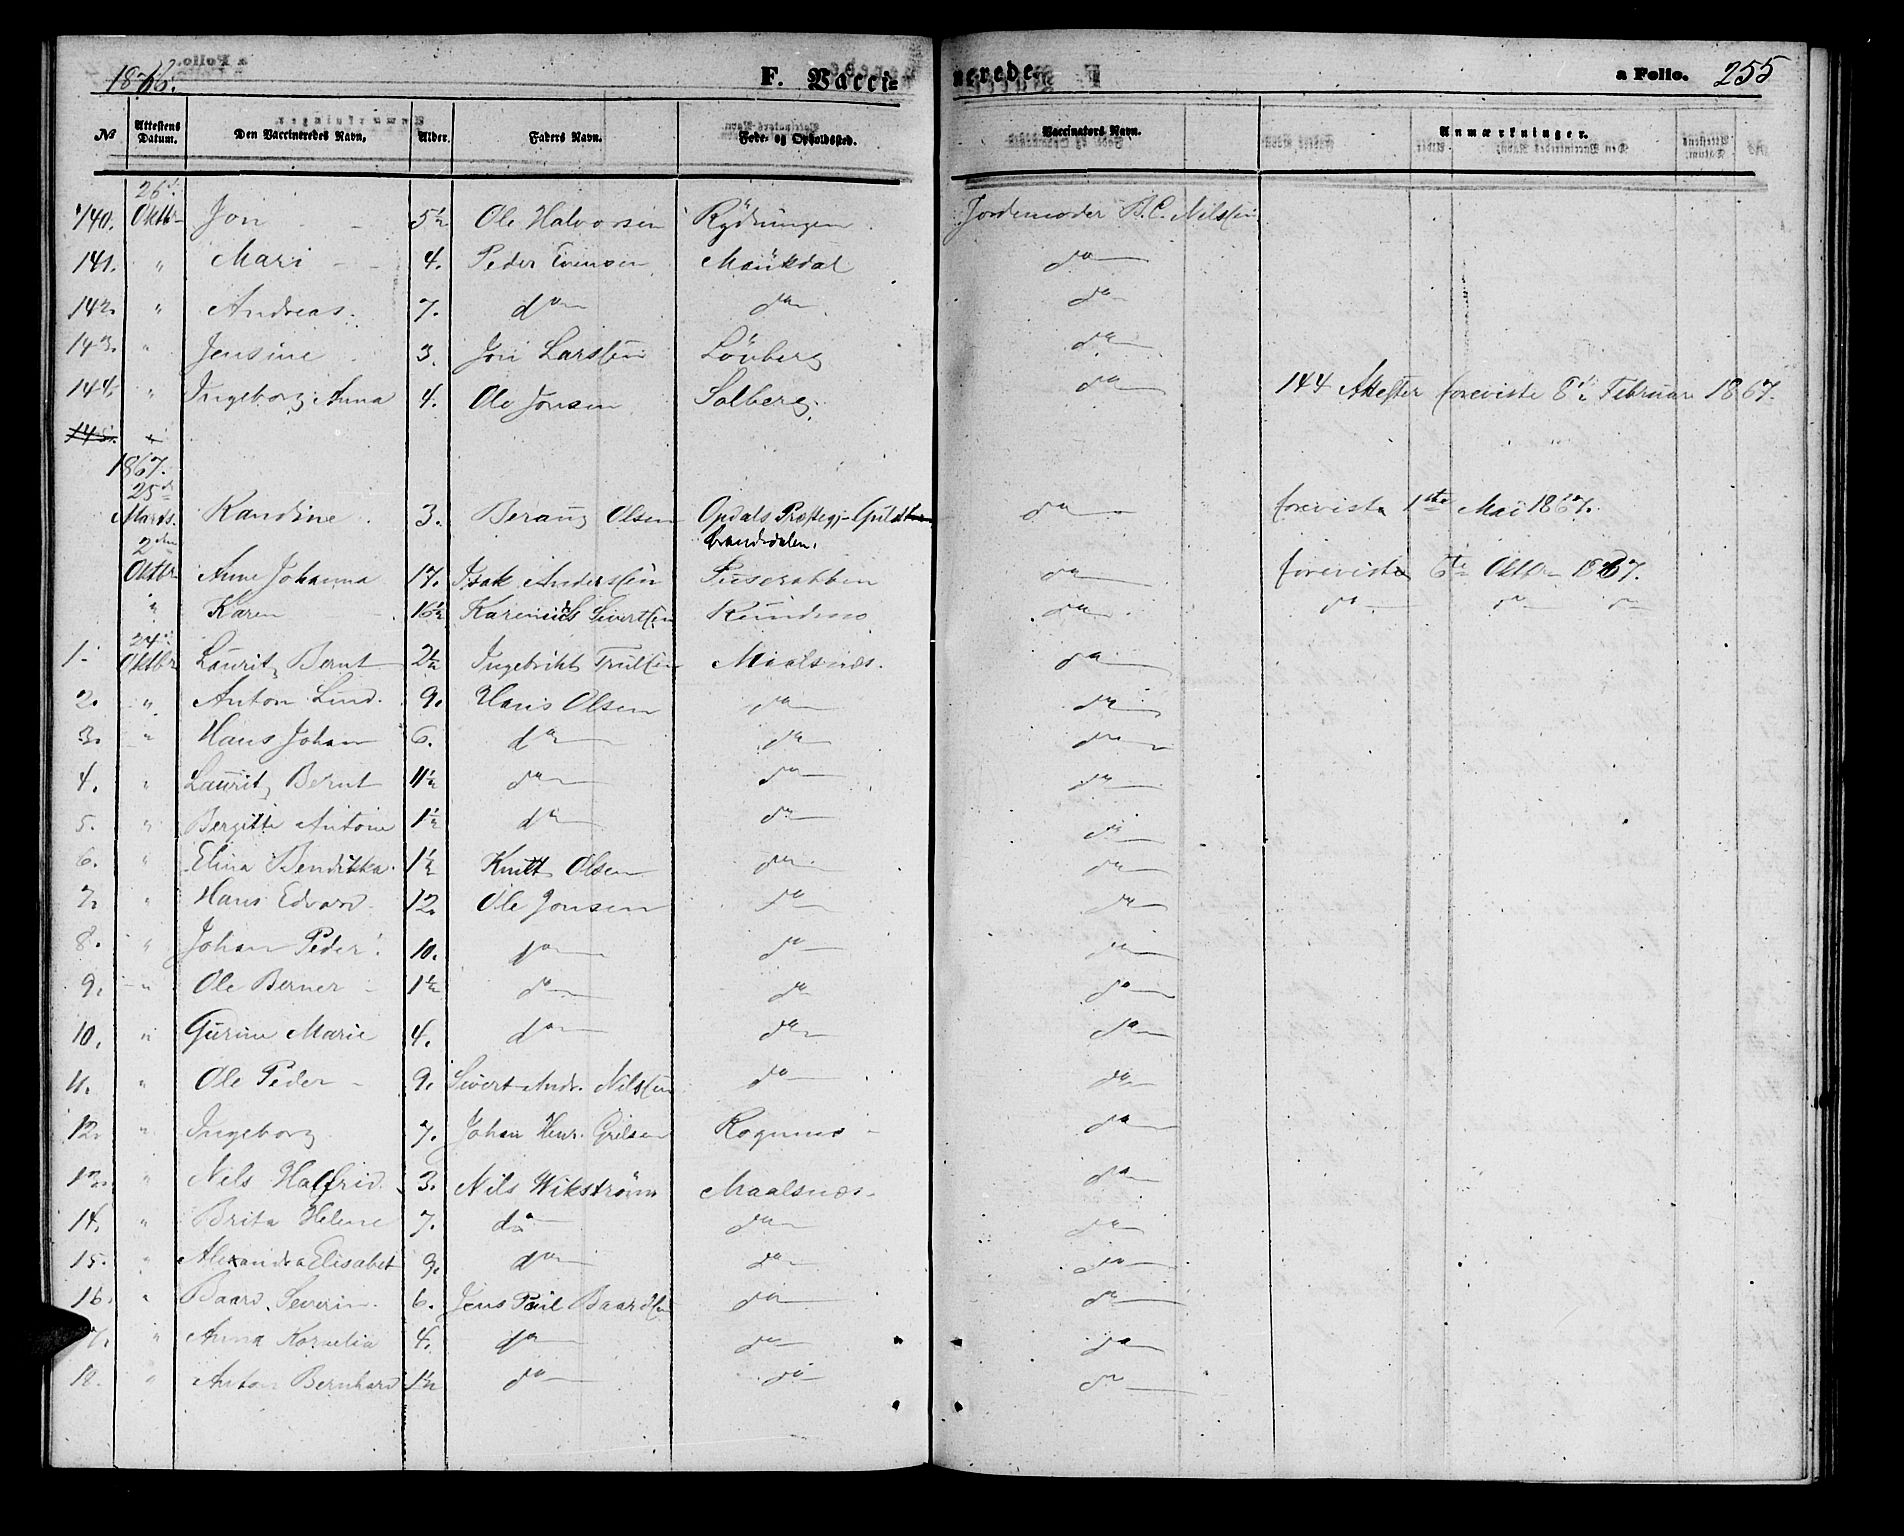 1866. F. Vacci= nerede. a Folio. 255
No Attestens Datum. Den Vaccineredes Navn, Alder. Faders Navn. Føde- og Opholdssted. Vaccinators Navn. Anmærkninger.
140. 26de Oktbr Jon 5½ Ole Halvorsen Rydningen Jordemoder B. C. Nilssen
141. " Mari 4. Peder Evensen Maukdal do
142. " Andreas. 7. do do do
143. " Jensine 3. Jon Larssen Lönberg do
144. " Ingeborg Anna 4. Ole Jonsen Solberg. do 144 Attester foreviste 8de Februar 1867.
145. "
1867.
25de Mards. Randine. 3. Beraug Olsen Opdals Præstegj- Guldbrandsdalen. do foreviste 1ste Mai 1867.
2den Oktbr Anne Johanna 17. Isak Anderssen do foreviste 6te Oktbr 1867.
" Karen 16½ Karenius Sivertsen Rundmo do do do do
1. 24de Oktbr Laurits Bernt 2½ Ingebrikt Trulsen Maalsnæs. do
2. " Anton Lind. 9. Hans Olsen do do
3. " Hans Johan 6. do do do
4. " Laurits Bernt 4½ do do do
5. " Bergitte Antone 1½ do do do
6. " Elina Bendikka. 1½ Knut Olsen do do
7. " Hans Edvard. 12. Ole Jonsen do do
8. " Johan Peder. 10. do do do
9. " Ole Berner 1½ do do do
10. " Gurine Marie 4. do do do
11. " Ole Peder 9. Sivert Andr. Nilssen do do
12. " Ingeborg 7. Johan Henr. Rognmo do
13. " Nils Halfrid. 3. Nils Wikström Maalsnæs. do
14. " Brita Helene 7. do do do
15. " Alexandra Elisabet 9. do do do
16. " Baard Severin. 6. Jens Paul Baardsen do do
17. " Anna Kornelia 4. do do do
18. " Anton Bernhard 1½ do do do